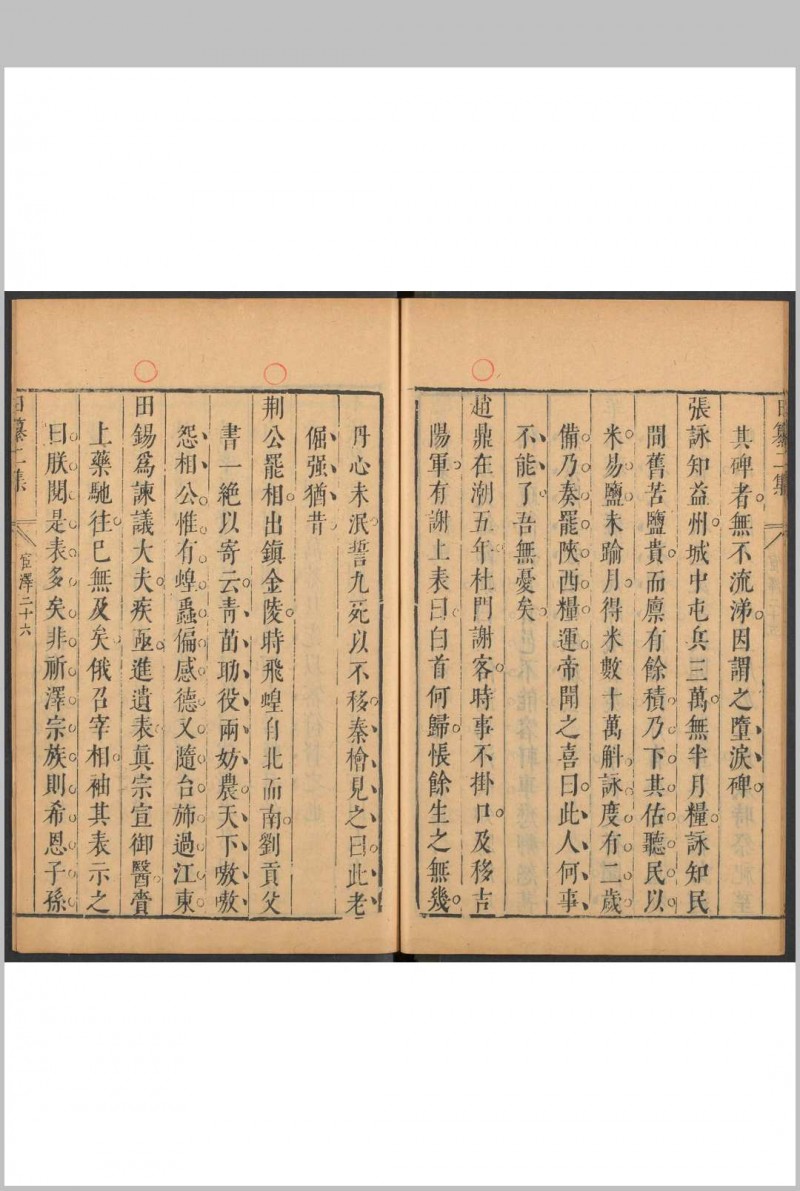 其碑者無不流涕因謂之墮淚碑
張詠知益州城中屯兵三萬無半月糧詠知民
間舊苦鹽貴而廪有餘積乃下其估聽民以
米易鹽未踰月得米數十萬斛詠度有二歲
備乃奏罷陝西糧運帝聞之喜曰此人何事
不能了吾無憂矣
趙鼎在潮五年杜門謝客時事不掛口及移吉
陽軍有謝上表曰白首何歸悵餘生之無幾
丹心未泯誓九死以不移秦檜見之曰此老
倔强猶昔
荆公罷相出鎮金陵時飛蝗自北而南劉貢父
書一絶以寄云青苗助役兩妨農天下嗷嗷
怨相公惟有蝗蟲偏感德又隨台斾過江東
田錫爲諫議大夫疾亟進遺表眞宗宣御醫賫
上藥馳往已無及矣俄召宰相袖其表示之
曰朕閱是表多矣非祈澤宗族則希恩子孫
日纂二集
宦澤二十六